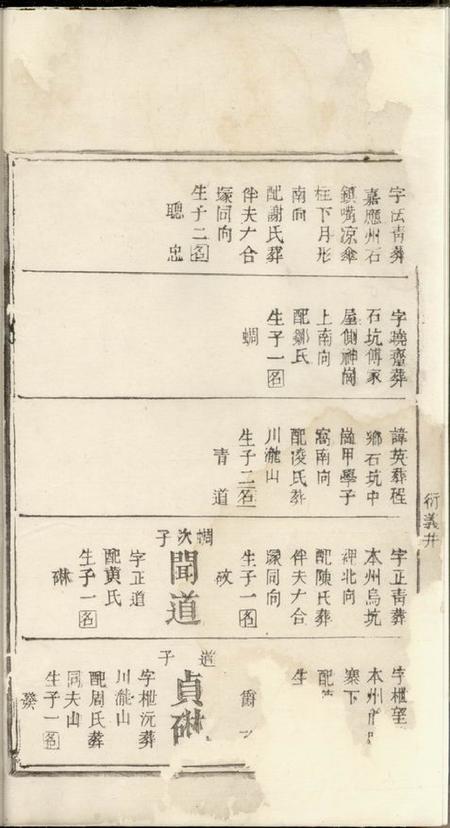 字法青葬
嘉應州石
鎮嘴凉傘
柱下月形
南向
配謝氏葬
伴夫大合
塚同向
生子二名
聰忠
字曉齋葬
石坑傅家
屋側神崗
上南向
配鄒氏
生子一名
蜩
諱英葬程
鄉石坑中
崗甲學子
窩南向
配凌氏葬
川瀧山
生子二名
青道
衍義井
字正青葬
本州烏坑
裡北向
配陳氏葬
伴夫大合
塚同向
生子一名
玫
蜩次子
聞道
字正道
配黃氏
生子一名
琳
字樞望
本州
寨下
配
生
爵
道子
貞琳
字樞沅葬
川瀧山
配周氏葬
同夫山
生子一名
發